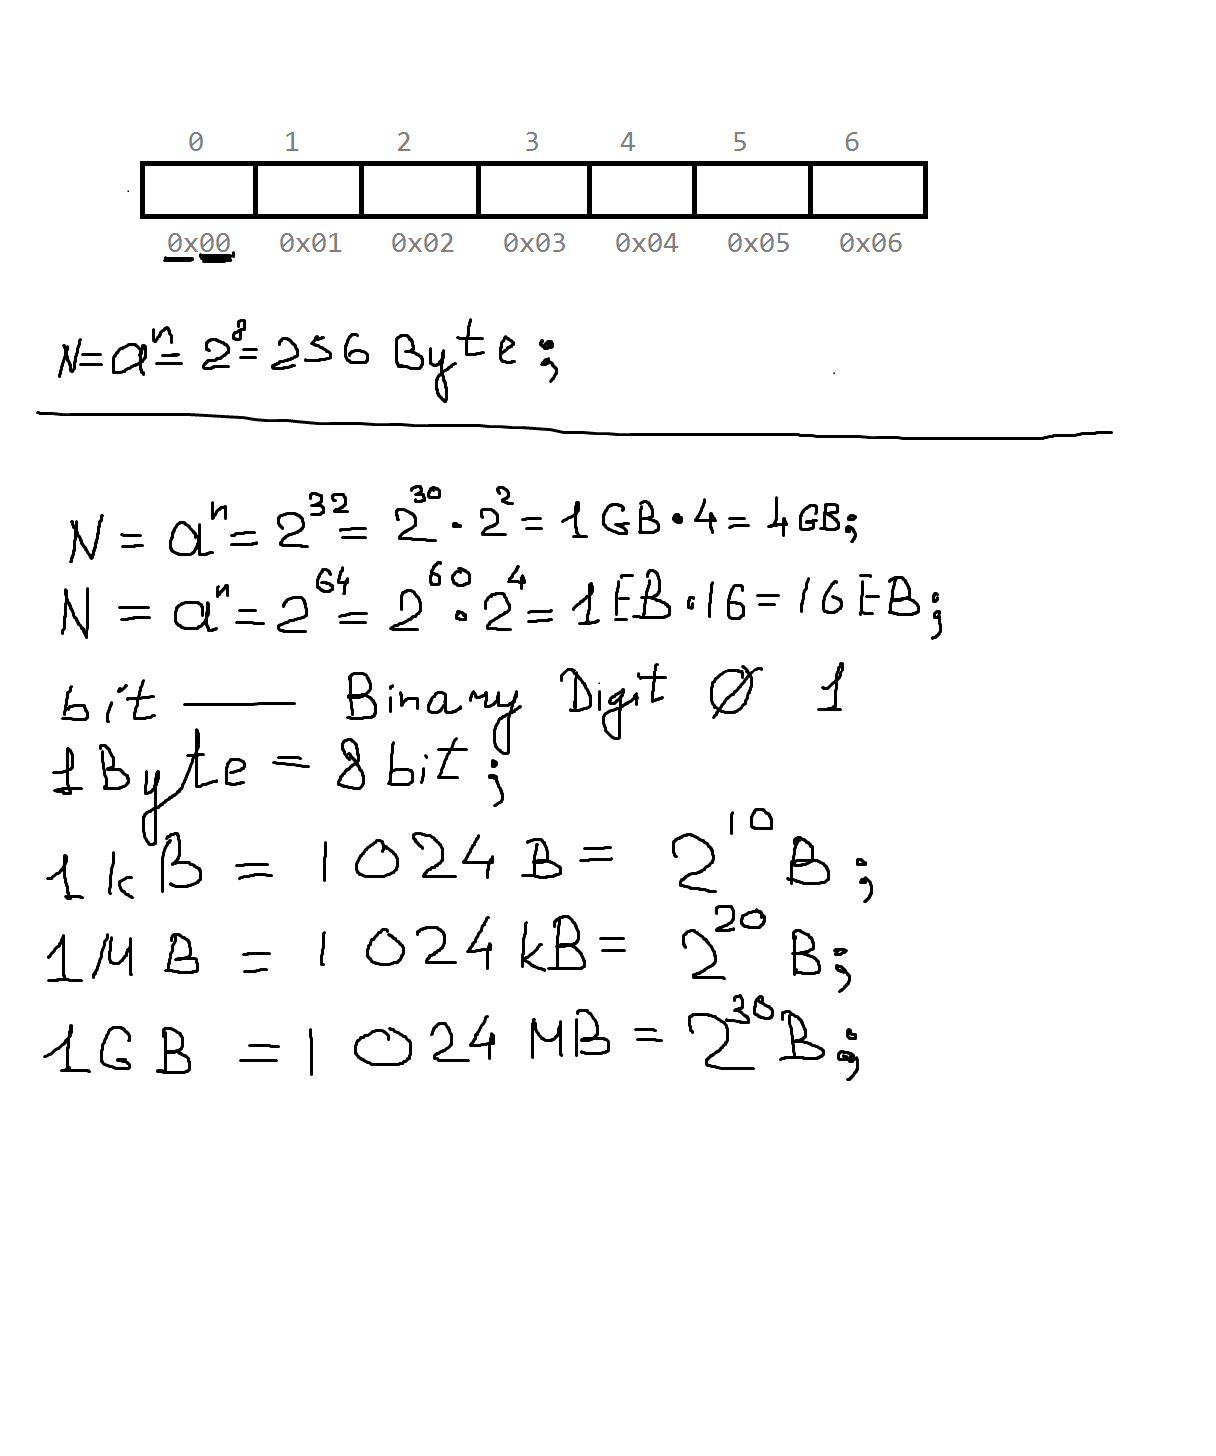 0 1 2 3 4 5 6
0x00 0x01 0x02 0x03 0x04 0x05 0x06
N=aⁿ=2⁸=256 Byte;
N=aⁿ=2³²=2³⁰·2²=1GB·4=4GB;
N=aⁿ=2⁶⁴=2⁶⁰·2⁴=1EB·16=16EB;
bit — Binary Digit Ø 1
1Byte=8bit;
1kB=1024B=2¹⁰B;
1MB=1024kB=2²⁰B;
1GB=1024MB=2³⁰B;